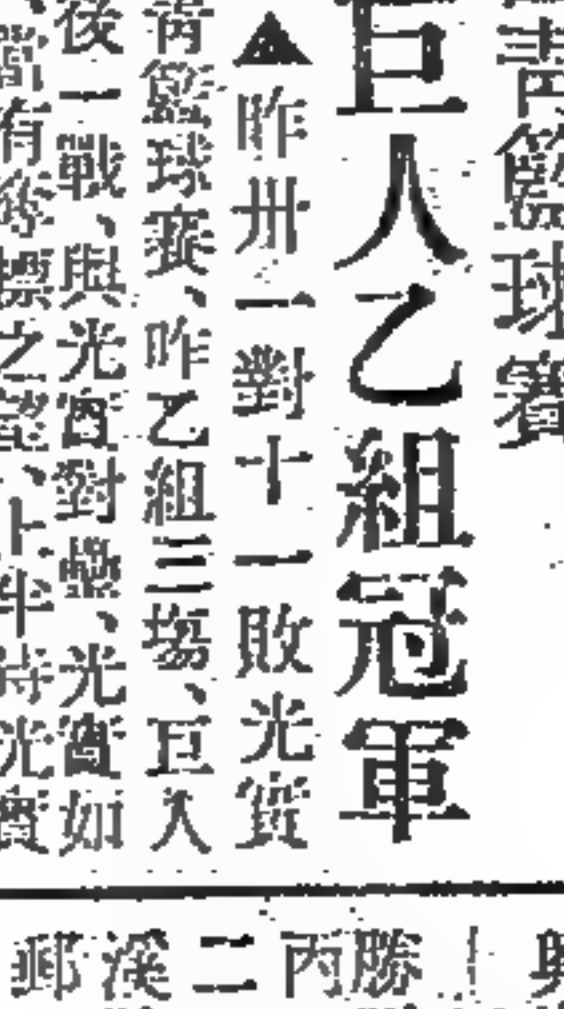 青籃球賽
巨人乙組冠軍
▲昨卅一對十一敗光實
青籃球賽、昨乙組三塲、巨人
後一戰、與光實對壘、光實如
有 標之望、上半時光實
奧
上
勝
丙
二
溪
郵